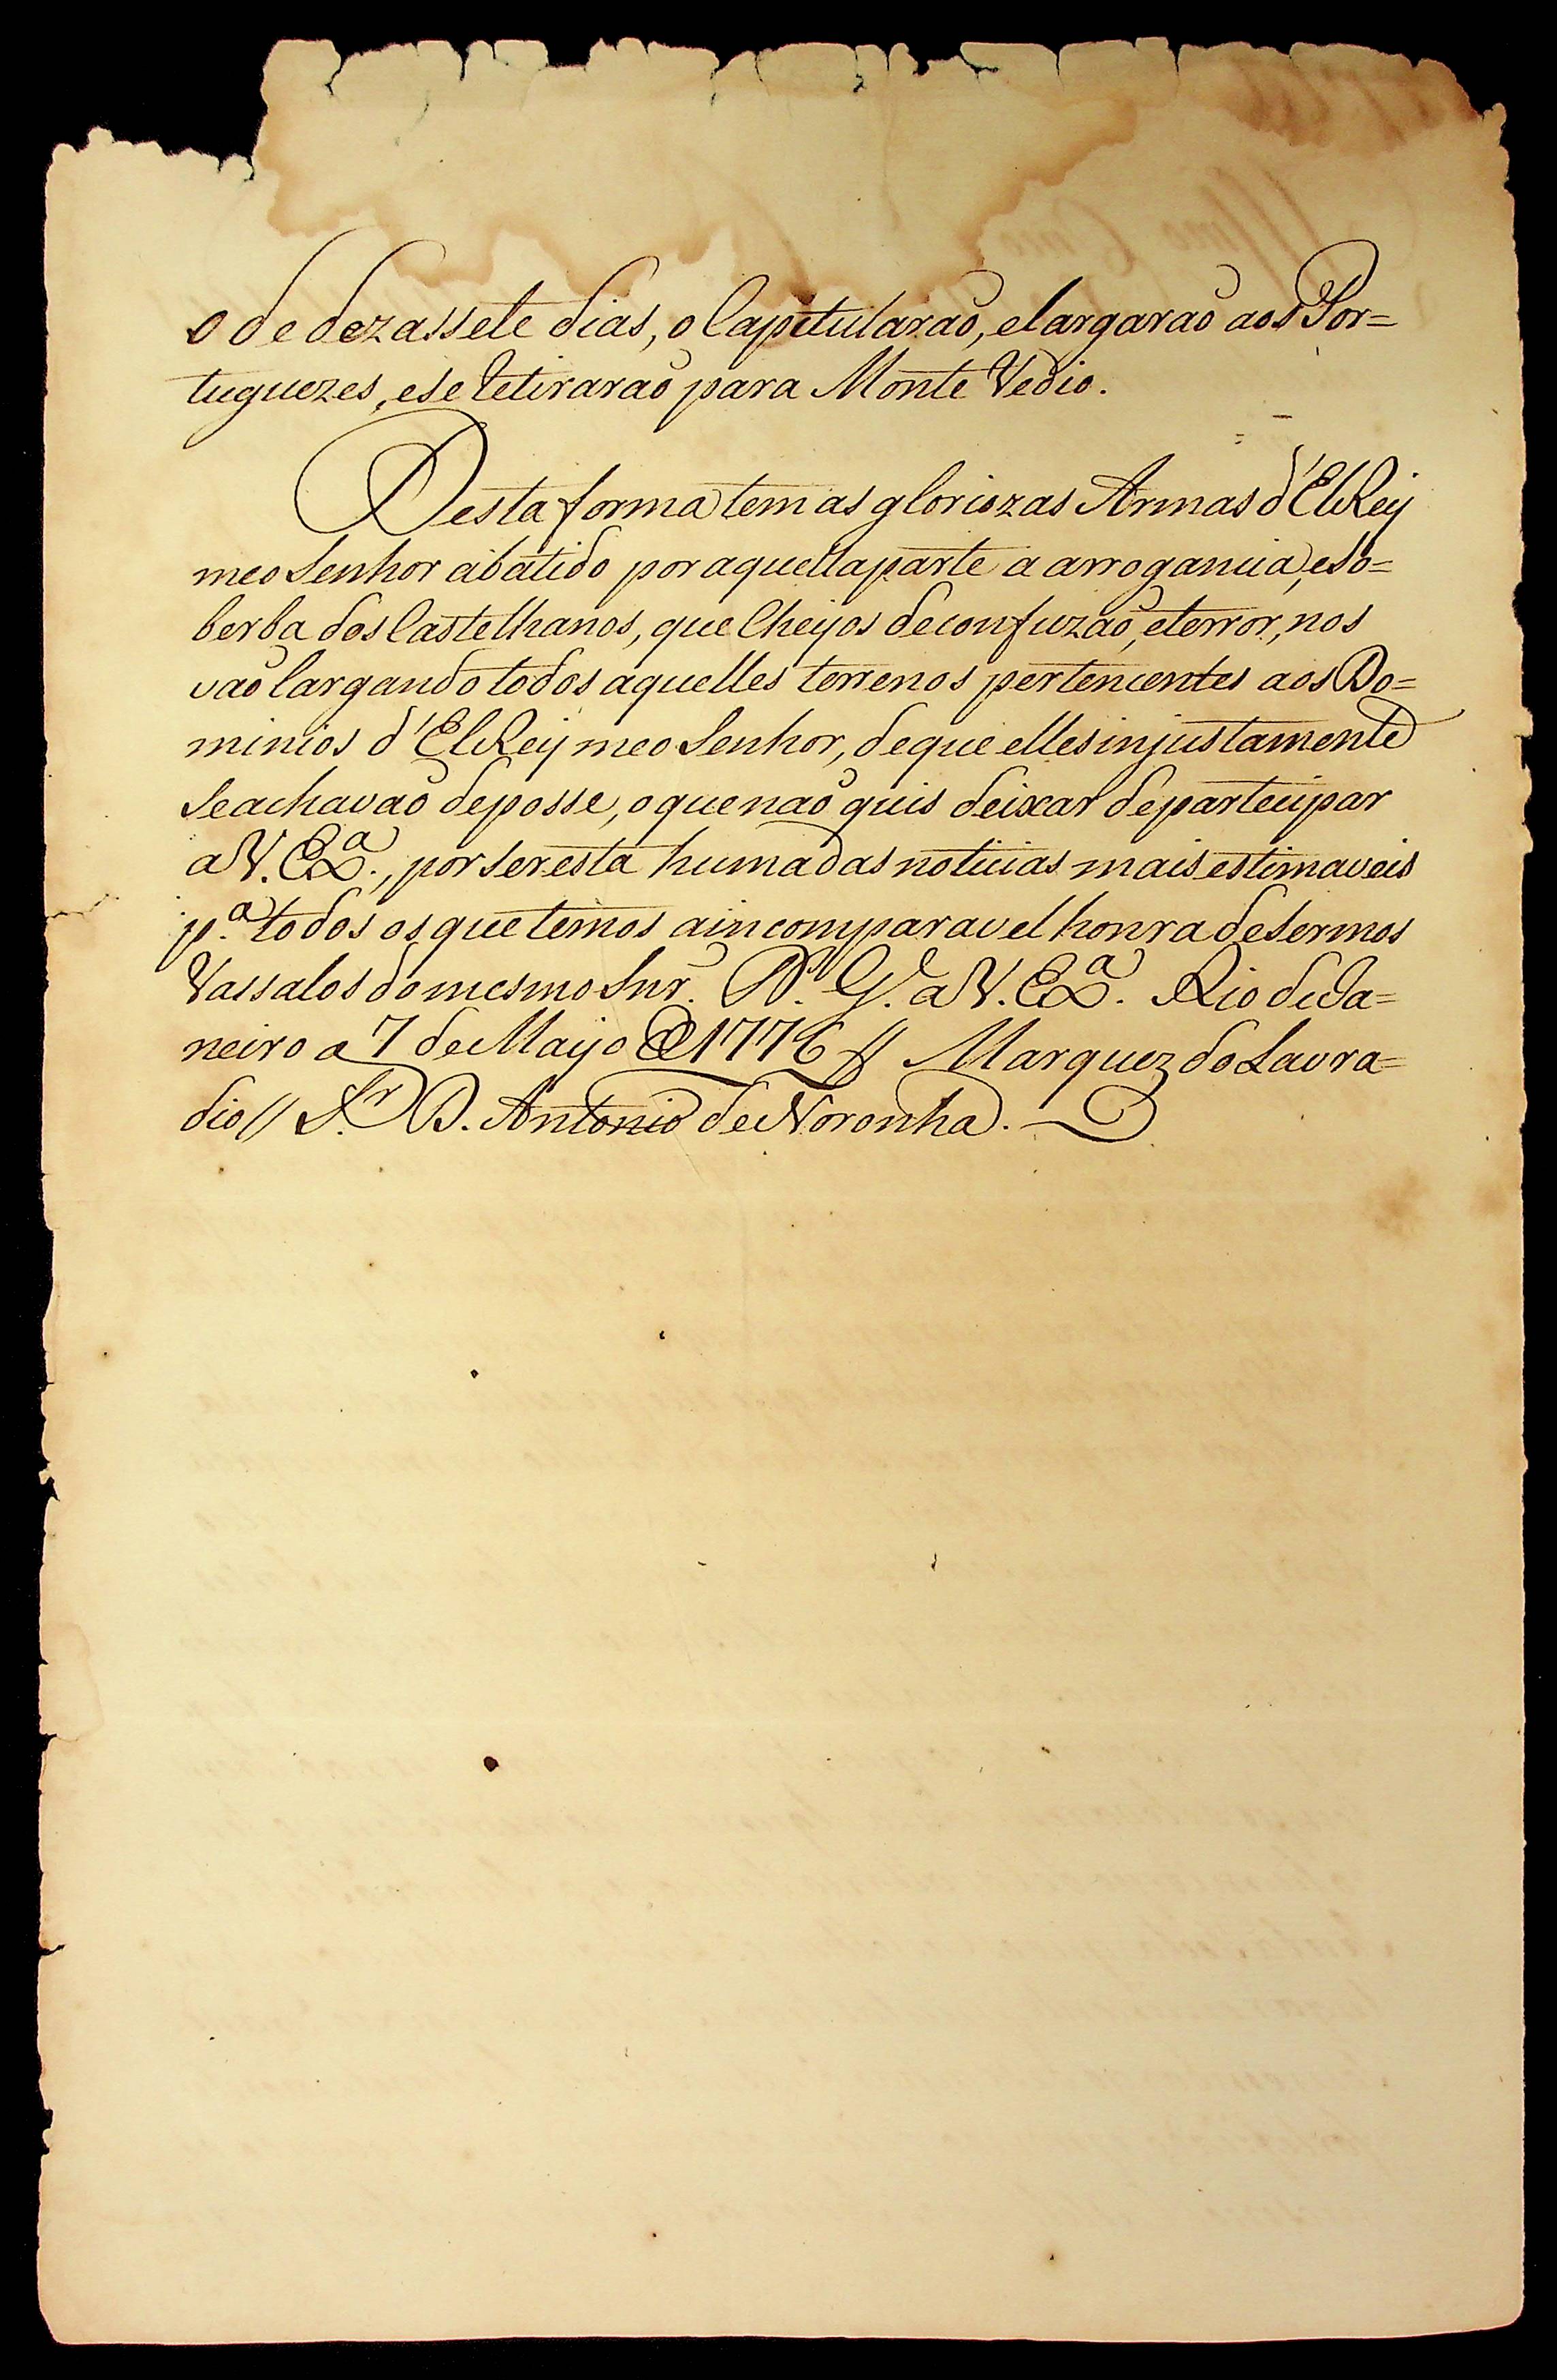 o de dezassete dias, o Capitularaõ, e largaraõ aos Por=
tuguezes, e se retiraraõ para Monte Vedio.
Desta forma tem as gloriozas Armas d'ElRey
meo Senhor abatido por aquella parte a arrogancia, e so=
berba dos Castelhanos, que Cheyos de confuzaõ, e terror, nos
vaõ largando todos aquelles terrenos pertencentes aos Do=
minios d'ElRey meo Senhor, de que elles injustamente
se achavaõ de posse, o que naõ quis deixar de participar
a V. Exª., por ser esta huma das noticias mais estimaveis
p.ª todos os que temos a incomparavel honra de sermos
Vassalos do mesmo Snr. D.s G.e a V. Exª. Rio de Ja=
neiro a 7 de Mayo de 1776 // Marquez do Lavra=
dio // S.r D. Antonio de Noronha.